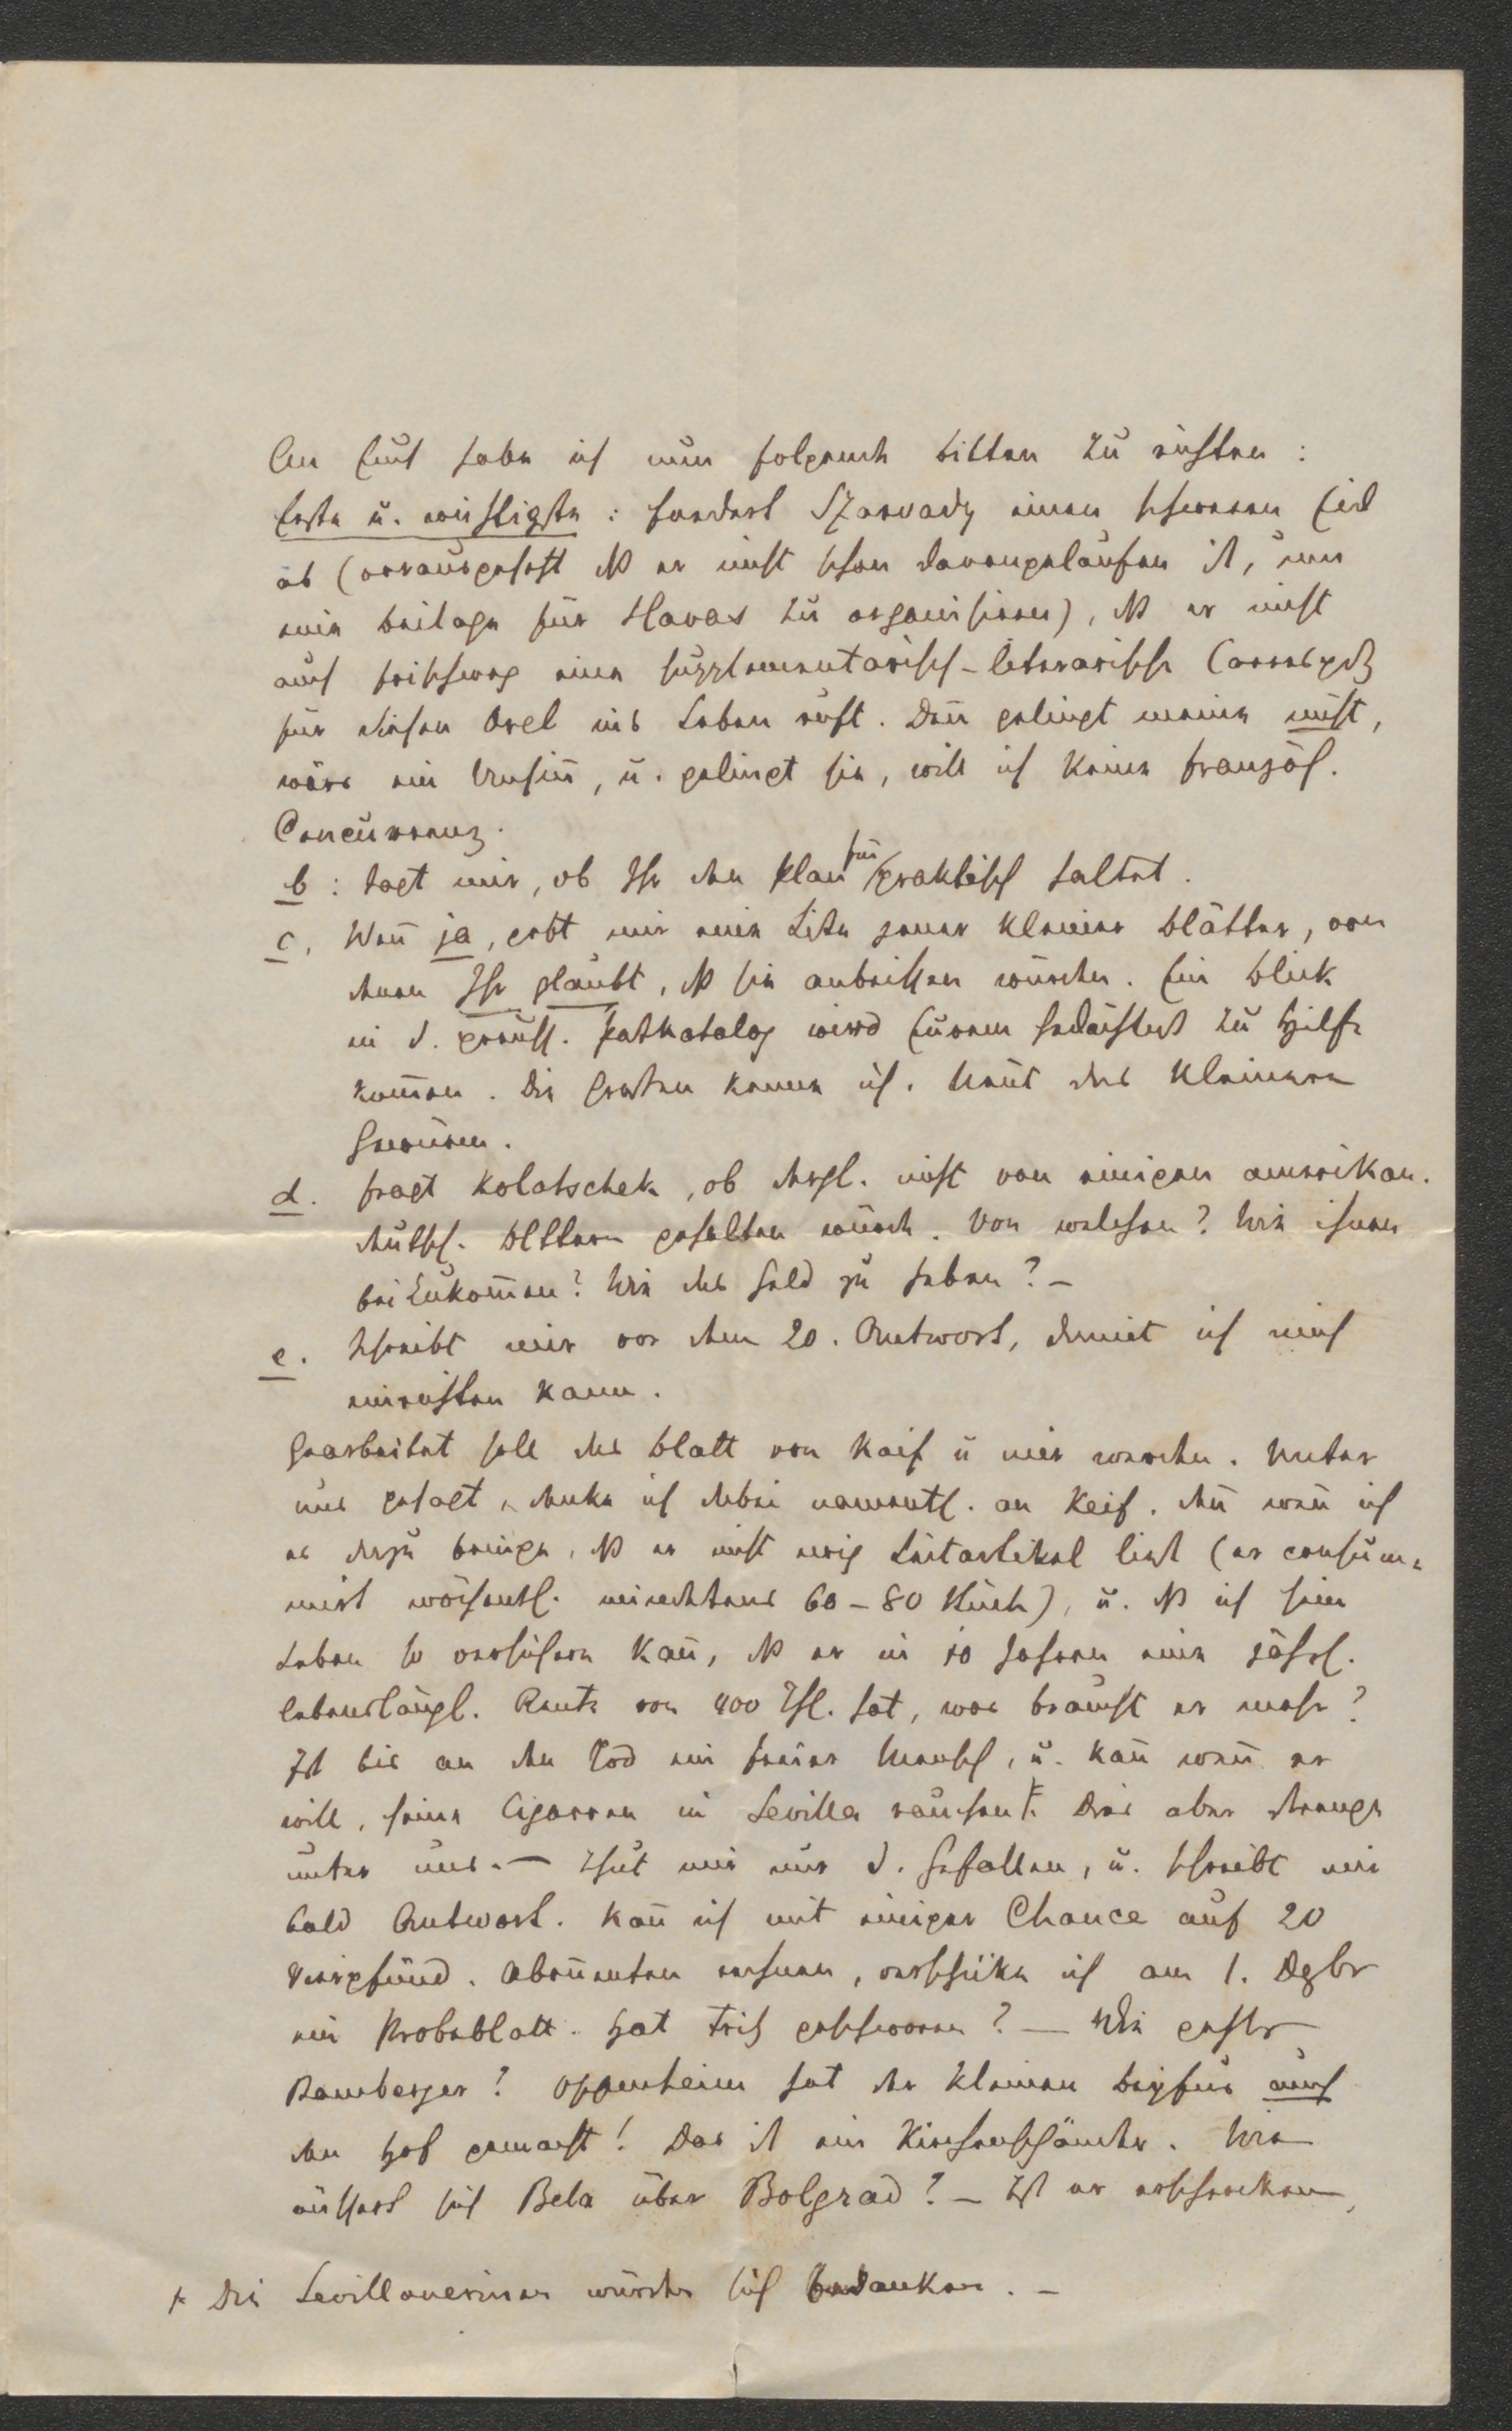 An Euch habe ich nun folgende Bitten zu richten :
Erste u. wichtigste : fordert Szarvady einen schweren Eid
ab (vorausgesetzt dß er nicht schon davongelaufen ist, um
eine Beilage für Havas zu organisiren), dß er nicht
auch frischweg eine supplementarisch-literarische Correspdz
für diesen Esel ins Leben ruft. Den̄ gelingt meine nicht,
wärs ein Unsin̄, u. gelingt sie, will ich keine französ.
Concurrenz.
b : Sagt mir, ob Ihr den Plan für praktisch haltet.
c. Wen̄ ja, gebt mir eine Liste jener kleiner Blätter, von
denen Ihr glaubt, dß sie anbeissen würden. Ein Blick
in d. preuss. Postkatalog wird Eurem Gedächtniß zu Hilfe
kom̄en. Die Großen kenne ich. Nen̄t das kleinere
Gewürm.
d. fragt Kolatschek, ob dergl. nicht von einigen amerikan.
deutsch. Blttern gehalten würde. Von welchen? Wie ihnen
beizukom̄en? Wie das Geld zu haben? –
e. Schreibt mir vor dem 20. Antwort, damit ich mich
einrichten kann.
Gearbeitet soll das Blatt von Kaif u mir werden. Unter
uns gesagt, denke ich dabei namentl. an Keif. Den̄ wen̄ ich
es dazu bringe, dß er nicht ewig Leitartikel liest (er consum-
mirt wöchentl. mindestens 60 – 80 Stück), u. dß ich sein
Leben so versichern kan̄, dß er in 10 Jahren eine jährl.
lebenslängl. Rente von 400 Thl. hat, was braucht er mehr?
Ist bis an den Tod ein freier Mensch, u. kan̄ wen̄ er
will, seine Cigarren in Sevilla rauchen*. Dies aber strenge
unter uns. – Thut mir nur d. Gefallen, u. schreibt mir
bald Antwort. Kan̄ ich mit einiger Chance auf 20
vierpfünd. Abon̄enten rechnen, verschicke ich am 1. Dzbr
ein Probeblatt. Hat Frih geschworen? – Wie gehts
Bamberger? Oppenheim hat der kleinen Dryfus auch
den Hof gemacht! Das ist ein Kirchenschänder. Wie
äussert sich Bela über Bolgrad? – Ist er erschrocken,
* Die Sevillanerinen würden sich bedanken. –